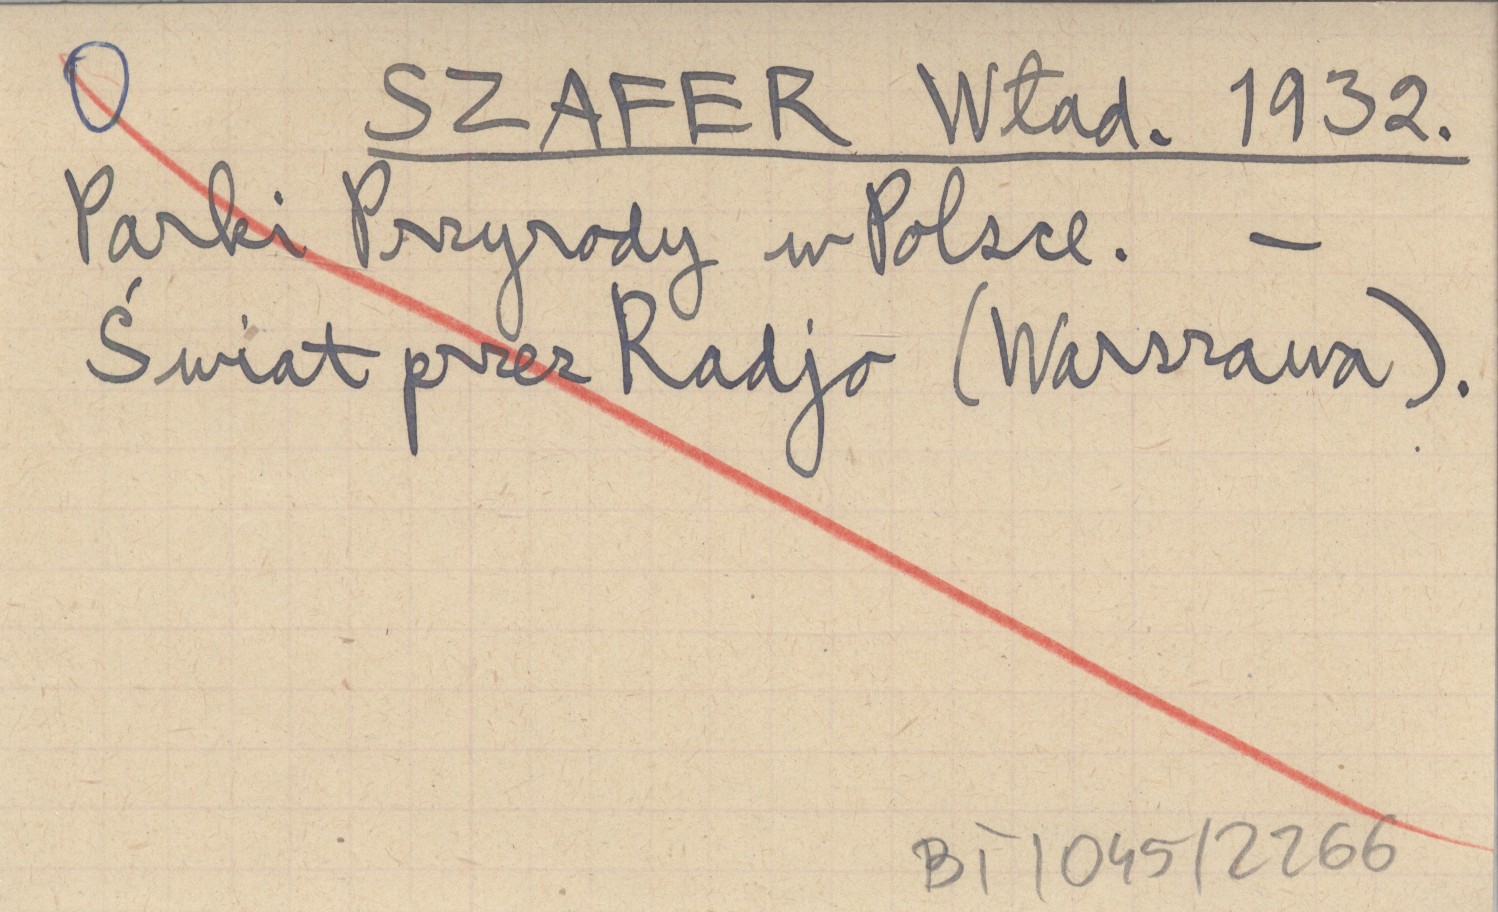 O SZAFER Wład. 1932.
Parki Przyrody w Polsce. –
Świat przez Radjo (Warszawa).
BI/045/2266